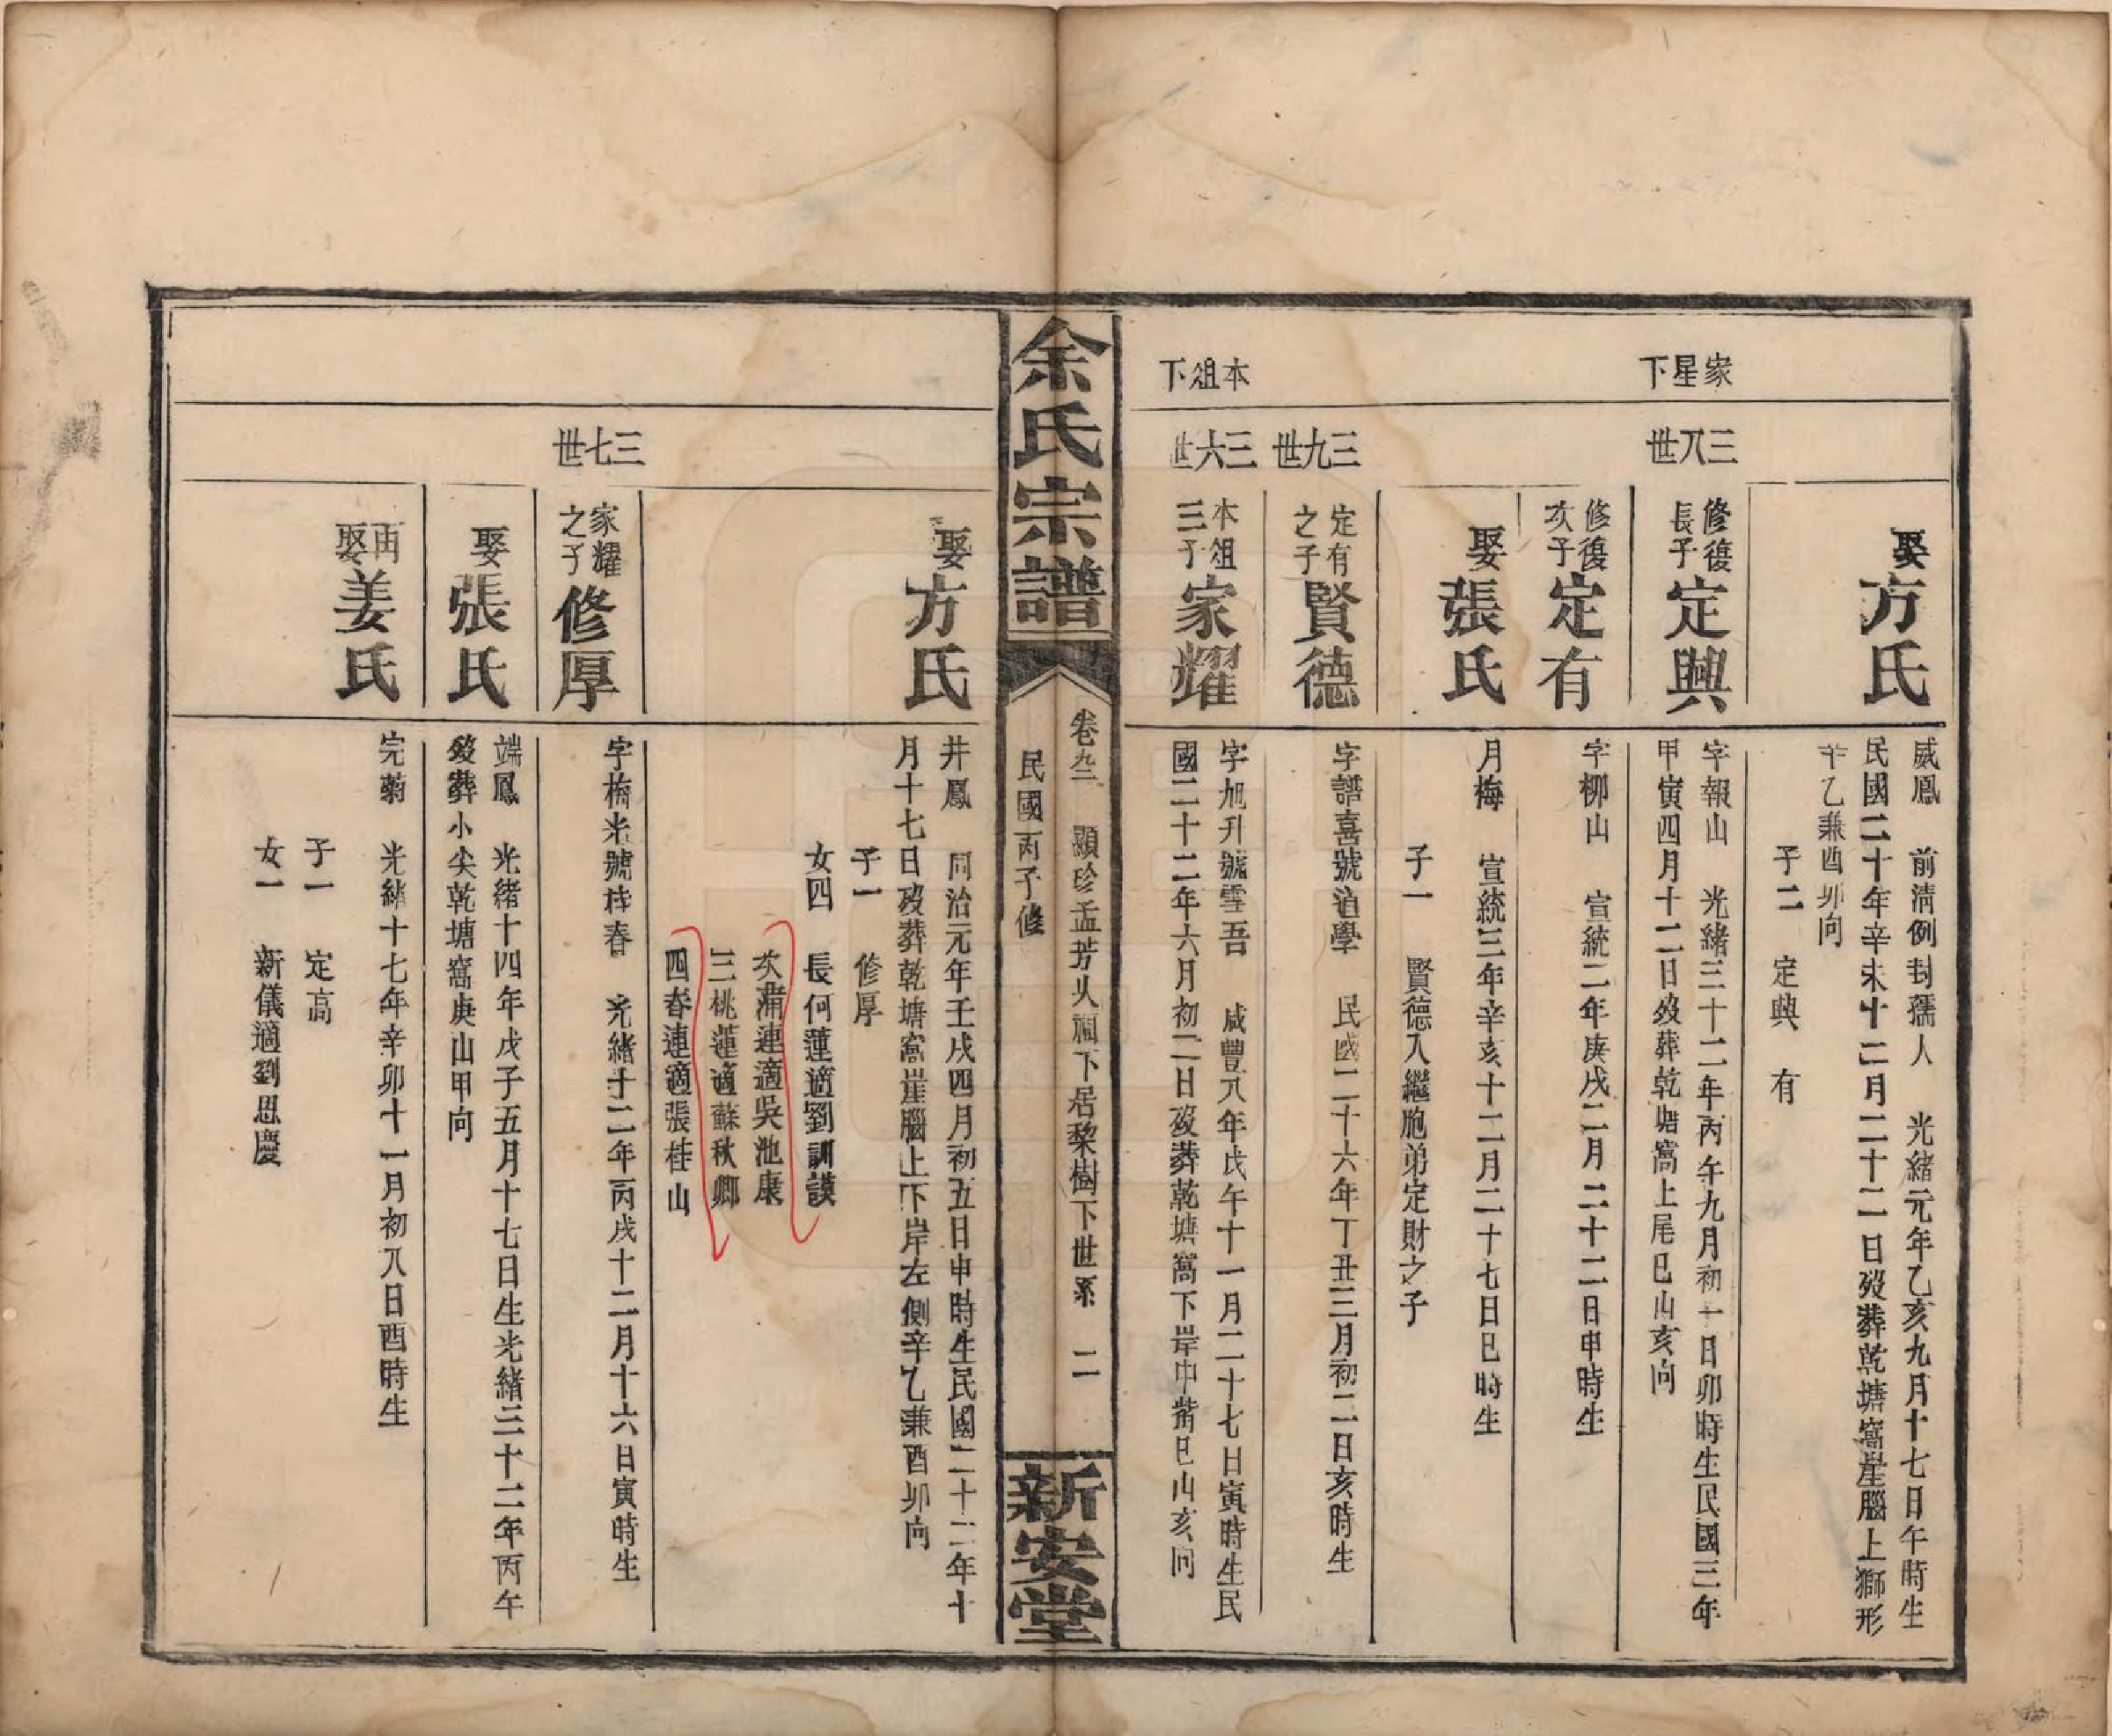 家星下
娶方氏
威鳳　前清例封孺人　光緒元年乙亥九月十七日午時生
民國二十年辛未十二月二十二日歿葬乾塘窩崖腦上獅形
辛乙兼酉卯向
子二　定興　有
三八世
修復長子定興
字報山　光緒三十二年丙午九月初一日卯時生民國三年
甲寅四月十二日歿葬乾塘窩上尾巳山亥向
修復次子定有
字柳山　宣統二年庚戌二月二十二日申時生
娶張氏
月梅　宣統三年辛亥十二月二十七日巳時生
子一　賢德入繼胞弟定財之子
三九世
定有之子賢德
字譜喜號道學　民國二十六年丁丑三月初二日亥時生
本祖下
三六世
本祖三子家耀
字旭升號雲吾　咸豐八年戊午十一月二十七日寅時生民
國二十二年六月初二日歿葬乾塘窩下岸中嘴巳山亥向
余氏宗譜
卷九二　顯珍孟芳火祖下居黎樹下世系　二
民國丙子修
新安堂
娶方氏
井鳳　同治元年壬戌四月初五日申時生民國二十二年十
月十七日歿葬乾塘窩崖腦上下岸左側辛乙兼酉卯向
子一　修厚
女四　長何蓮適劉訓謨
次蒲連適吳池康
三桃蓮適蘇秋卿
四春連適張桂山
三七世
家耀之子修厚
字梅米號桂春　光緒十二年丙戌十二月十六日寅時生
娶張氏
端鳳　光緒十四年戊子五月十七日生光緒三十二年丙午
歿葬小尖乾塘窩庚山甲向
再娶姜氏
完菊　光緒十七年辛卯十一月初八日酉時生
子一　定高
女一　新儀適劉思慶